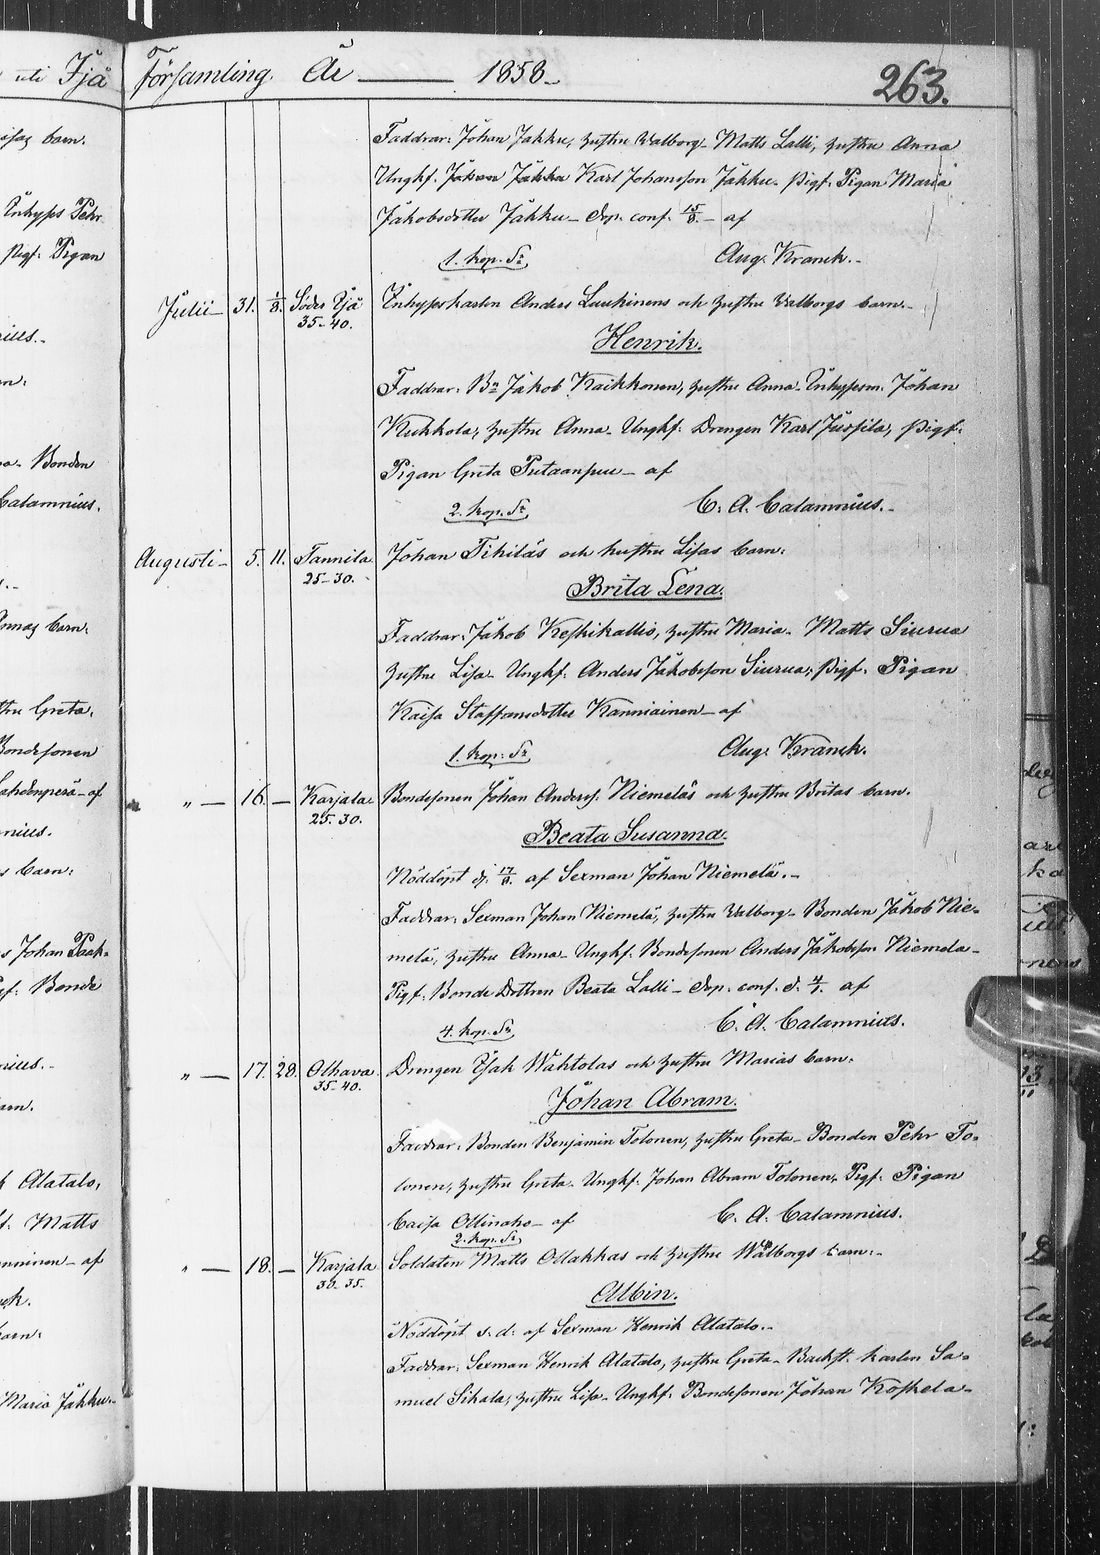 Församling. År 1858. 263.
Faddrar: Johan Jakku, hustru Walborg. Matts Lalli, hustru Anna
Ungkf. Johan Jakku Karl Johansson Jäkku. Pigf. Pigan Maria
Jakobsdotter Jäkku dop. conf. 15/8. af
1. kop. Sr. Aug. Kranck.
Julii 31. 1/8. Södra Ijå Inhyseskarlen Anders Luukinens och hustru Walborgs barn.
35-40.
Henrik.
Faddrar: Bn Jakob Kaikkonen, hustru Anna. Inhysesm. Johan
Kukkola, hustru Anna. Ungkf. Drengen Karl Jussila, Pigf.
Pigan Greta Putaanpuu af
2. kop. Sr. C. A. Calamnius.
Augusti 5. 11. Tannila Johan Tihiläs och hustru Lisas barn:
25-30.
Brita Lena.
Faddrar: Jakob Keskikallio, hustru Maria. Matts Siurua
hustru Lisa. Ungkf. Anders Jakobsson Siurua, Pigf. Pigan
Kaisa Staffansdotter Kanniainen af
1. kop. Sr. Aug. Kranck.
" 16. — Karjala Bondesonen Johan Anderss. Niemeläs och hustru Britas barn.
25-30.
Beata Susanna.
Nöddöpt d. 17/8. af Sexman Johan Niemelä.
Faddrar: Sexman Johan Niemelä, hustru Walborg. Bonden Jakob Nie-
melä, hustru Anna. Ungkf. Bondesonen Anders Jakobsson Niemelä
Pigf. Bonde Dottren Beata Lalli dop. conf. d. af
4. kop. Sr. C. A. Calamnius.
" 17. 28. Olhava Drengen Isak Wähtolas och hustru Marias barn:
35-40.
Johan Abram.
Faddrar: Bonden Benjamin Tolonen, hustru Greta. Bonden Pehr To-
lonen, hustru Greta. Ungkf. Johan Abram Tolonen, Pigf. Pigan
Caisa Ollinaho af C. A. Calamnius.
2. kop. Sr.
" 18. — Karjala Soldaten Matts Ollakkas och hustru Walborgs barn:
30-35.
Albin.
Nöddöpt s. d. af Sexman Henrik Alatalo.
Faddrar: Sexman Henrik Alatalo, hustru Greta. Backst. karlen Sa-
muel Sikala, hustru Lisa. Ungkf. Bondesonen Johan Koskela